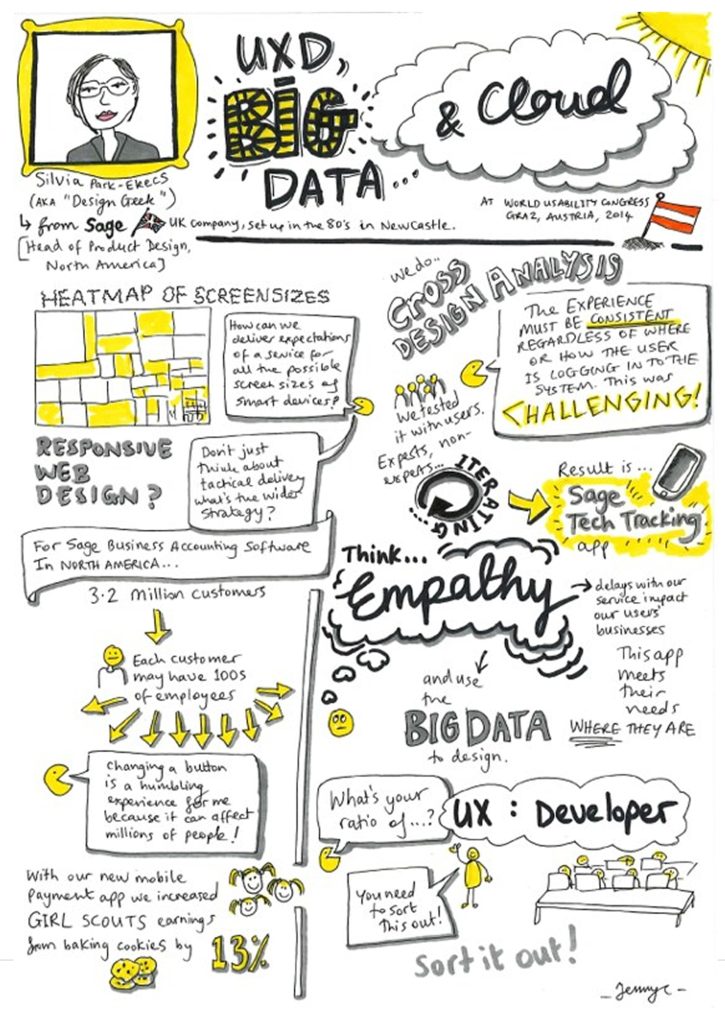 UXD,
BIG
DATA...
& Cloud
Silvia Park-Ekecs
(AKA "Design Geek")
↳ from Sage UK Company, set up in the 80's in Newcastle.
[Head of Product Design,
North America]
AT WORLD USABILITY CONGRESS
GRAZ, AUSTRIA, 2014
HEATMAP OF SCREENSIZES
How can we
deliver expectations
of a service for
all the possible
screen sizes of
smart devices?
RESPONSIVE
WEB
DESIGN?
Don't just
think about
tactical delivery
what's the wider
strategy?
we do..
CROSS
DESIGN ANALYSIS
THE EXPERIENCE
MUST BE CONSISTENT
REGARDLESS OF WHERE
OR HOW THE USER
IS LOGGING IN TO THE
SYSTEM. THIS WAS
CHALLENGING!
We tested
it with users.
Experts, non-
experts...
ITERATING...
Result is...
Sage
Tech Tracking
app
For Sage Business Accounting Software
In NORTH AMERICA...
3.2 million customers
Each customer
may have 100s
of employees
Changing a button
is a humbling
experience for me
because it can affect
millions of people!
With our new mobile
payment app we increased
GIRL SCOUTS earnings
from baking cookies by
13%
Think...
Empathy
→ delays with our
service impact
our users'
businesses
This app
meets
their
needs
WHERE THEY ARE
and use
the
BIG DATA
to design.
What's your
ratio of...?
UX : Developer
You need
to sort
this out!
Sort it out!
_ Jennyc -